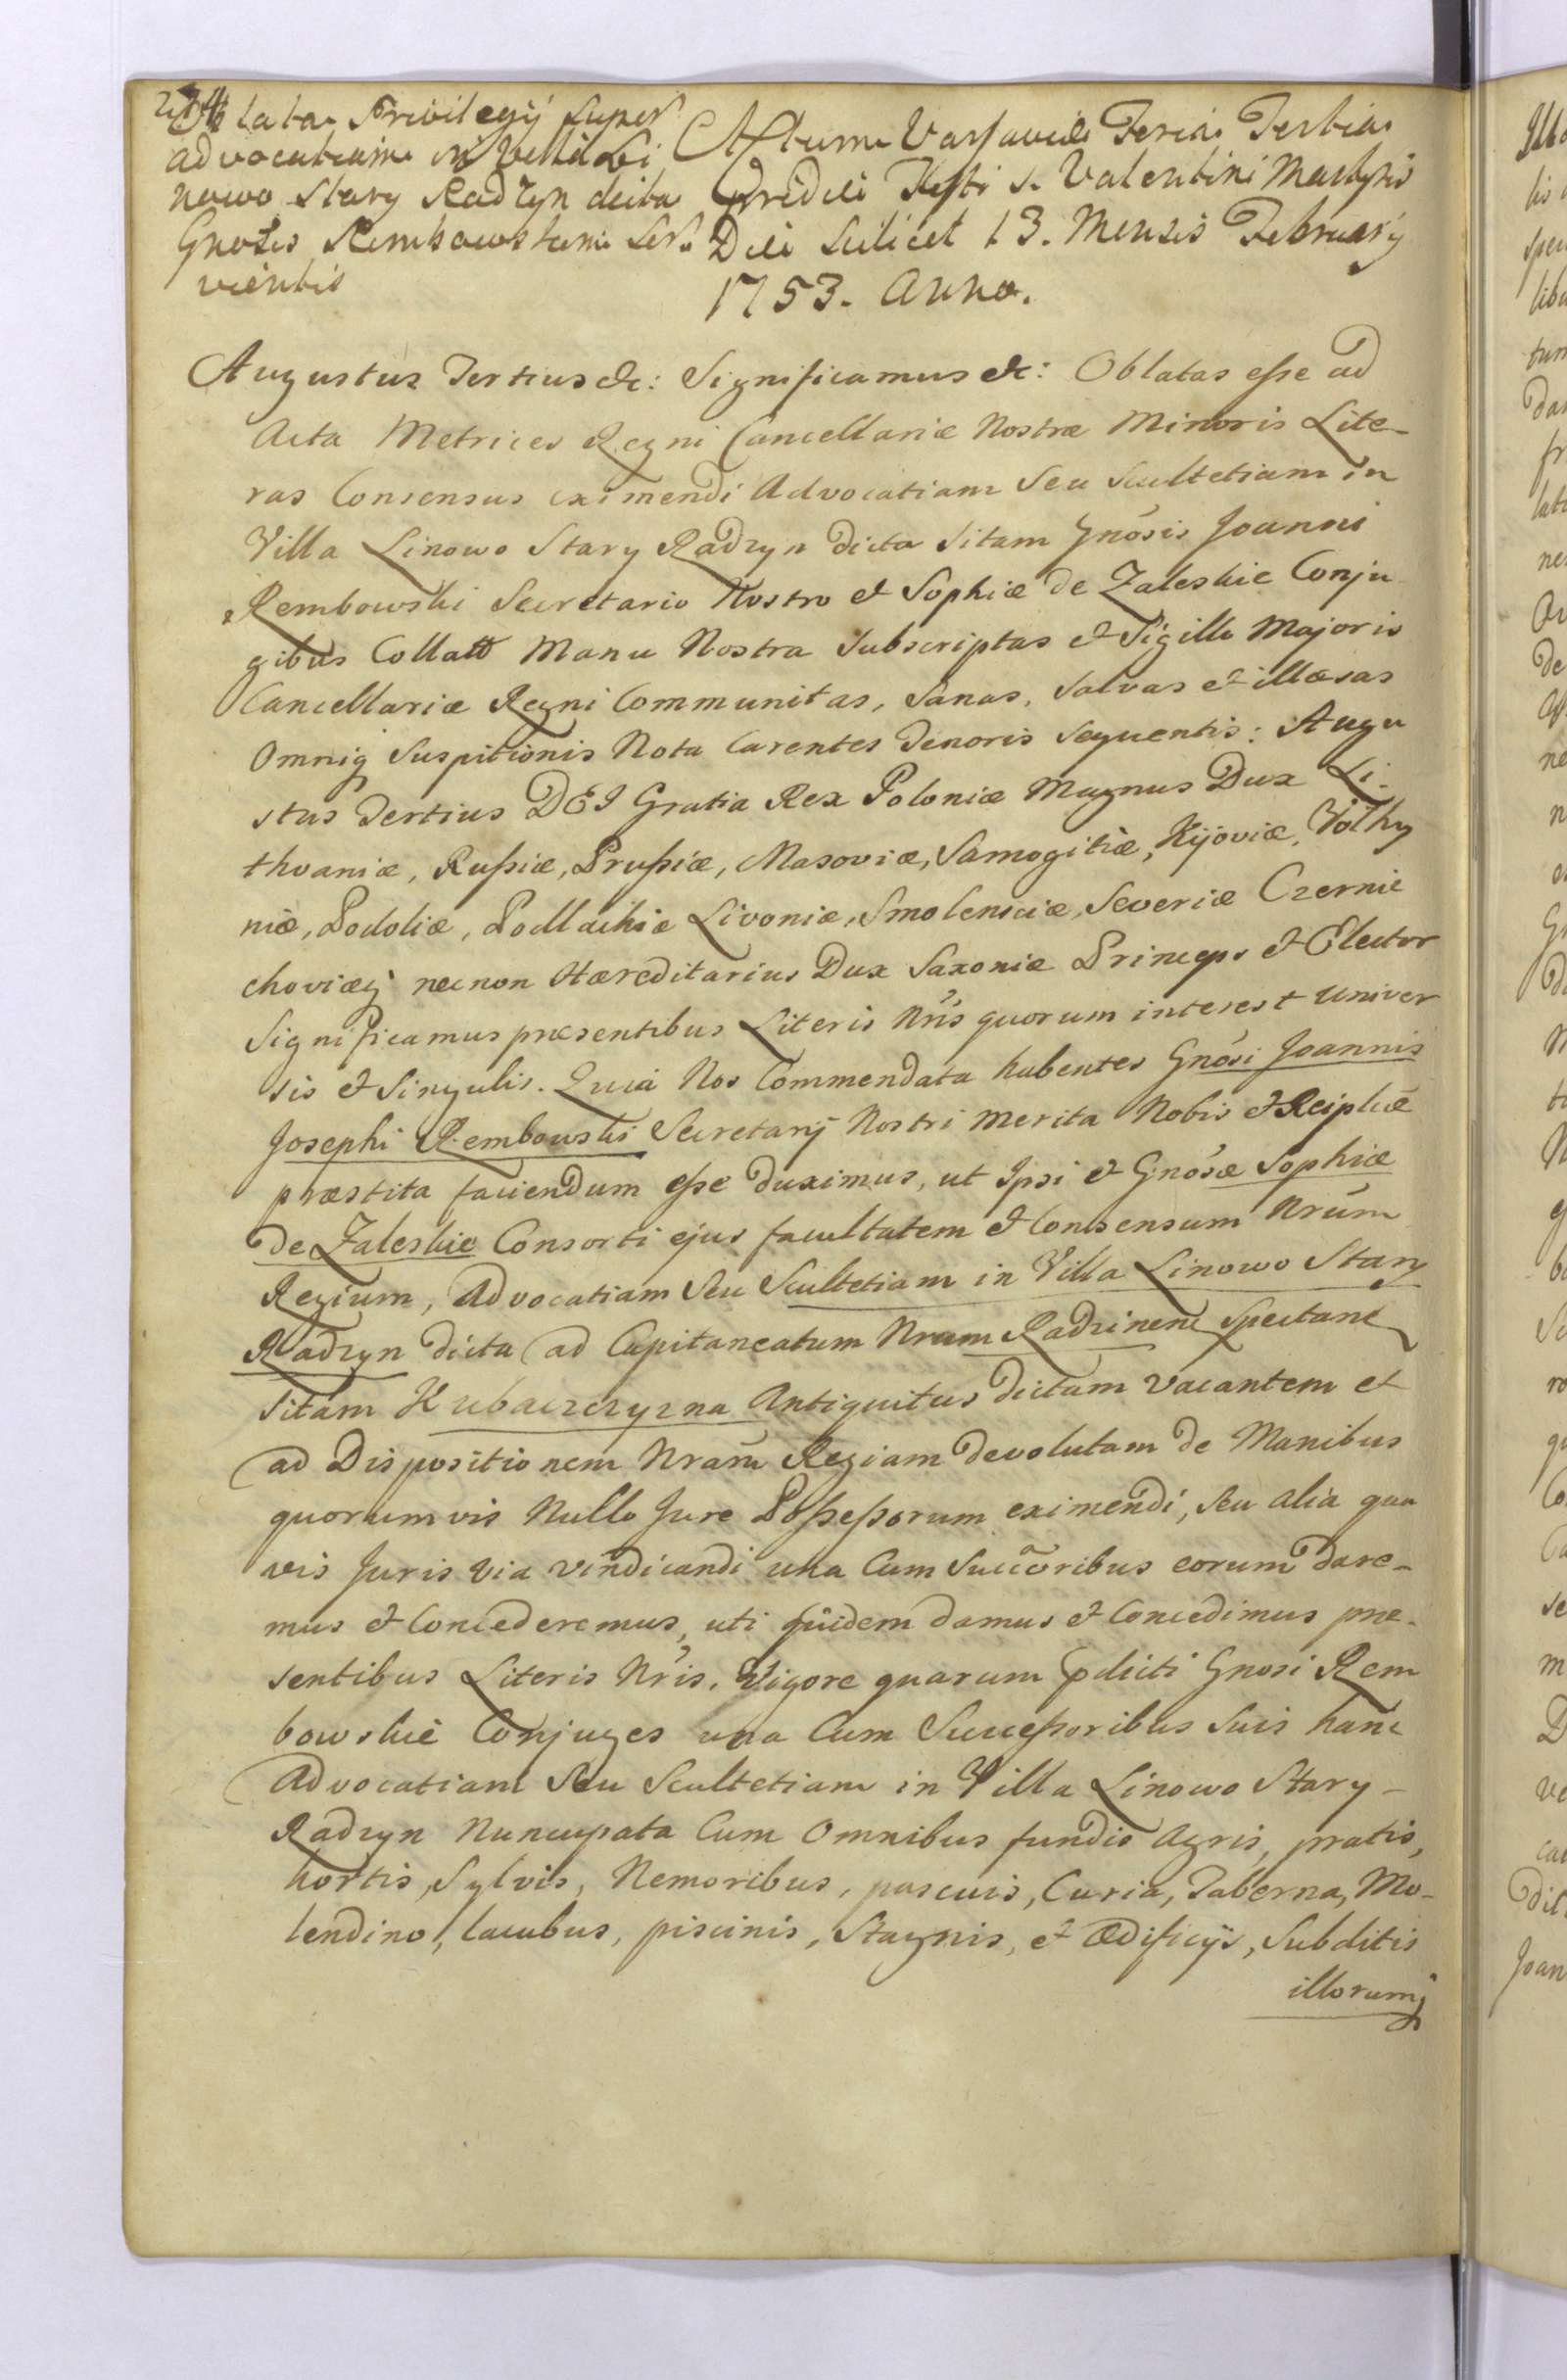 Oblata Privilegij super
advocatiam in Villa Li
nowo Stary Radzyn dicta
Gnosis Rembowskim ser
vientis
Actum Varsaviæ Feria Tertia
Pridie Festi S. Valentini Martyris
Die Scilicet 13. Mensis February
1753. Anno.
Augustus Tertius &c: Significamus &c: Oblatas eſse ad
Acta Metrices Regni Cancellariæ Nostræ Minoris Lite-
ras Consensus eximendi Advocatiam Seu Scultetiam in
Villa Linowo Stary Radzyn dicta Sitam Gnosis Joanni
Rembowski Secretario Nostro et Sophiæ de Zaleskie Conju
gibus Collatt Manu Nostra Subscriptas et Sigillo Majoris
Cancellariæ Regni Communitas, Sanas, Salvas et illæsas
Omniq Suspitionis Nota Carentes Tenoris Sequentis: Augu
stus Tertius DEI Gratia Rex Poloniæ Magnus Dux Li-
thvaniæ, Ruſsiæ, Pruſsiæ, Masoviæ, Samogitiæ, Kijoviæ, Volhy
niæ, Podoliæ, Podlachiæ Livoniæ, Smolensciæ, Severiæ Czernie
choviæq necnon Hæreditarius Dux Saxoniæ Princeps et Elector
Significamus præsentibus Literis Nris quorum interest Univer
sis et Singulis. Quia Nos Commendata habentes Gnosi Joannis
Josephi Rembowski Secretarij Nostri Merita Nobis et Reiplicæ
præstita faciendum eſse duximus, ut Ipsi et Gnosæ Sophiæ
de Zaleskie Consorti ejus facultatem et Consensum Nrum
Regium, Advocatiam Seu Scultetiam in Villa Linowo Stary
Radzyn dicta ad Capitaneatum Nrum Radzinens Spectant
Sitam Kubaczczyzna Antiquitus dictam Vacantem et
ad Dispositionem Nram Regiam devolutam de Manibus
quorumvis Nullo Jure Poſseſsorum eximendi, Seu alia qua
vis Juris Via Vindicandi una Cum Succoribus eorum dare-
mus et Concederemus, uti quidem damus et Concedimus præ-
sentibus Literis Nris. Vigore quarum pdicti Gnosi Rem
bowskie Conjuges una Cum Succeſsoribus Suis hanc
Advocatiam Seu Scultetiam in Villa Linowo Stary-
Radzyn Nuncupata Cum Omnibus fundis Agris, pratis,
hortis, Sylvis, Nemoribus, pascuis, Curia, Taberna, Mo-
lendino, lacubus, piscinis, Stagnis, et Ædificijs, Subditis
illorumq